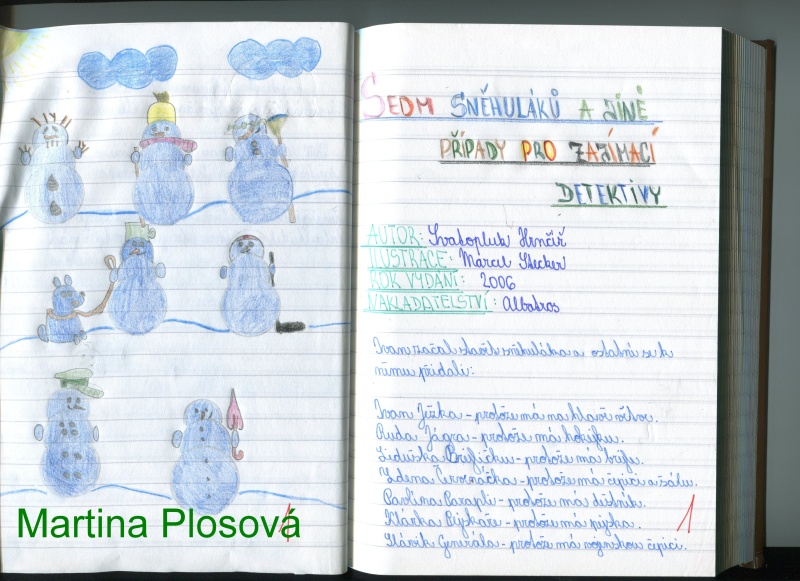 Martina Plosová
1
SEDM SNĚHULÁKŮ A JINÉ
PŘÍPADY PRO ZAJÍMACÍ
DETEKTIVY
AUTOR: Svatopluk Hrnčíř
ILUSTRACE: Marcel Stecker
ROK VYDÁNÍ: 2006
NAKLADATELSTVÍ: Albatros
Ivan začal stavět sněhuláka a ostatní se k
němu přidali:
Ivan Ježka - protože má na hlavě
Ruda Jágra - protože má hokejku.
Liduška - protože má brýle.
Zdena - protože má čepici a šálu.
Pavlína Parapli - protože má deštník.
Klárka Pejskaře - protože má pejska.
Slávik Generála - protože má vojenskou čepici.
1